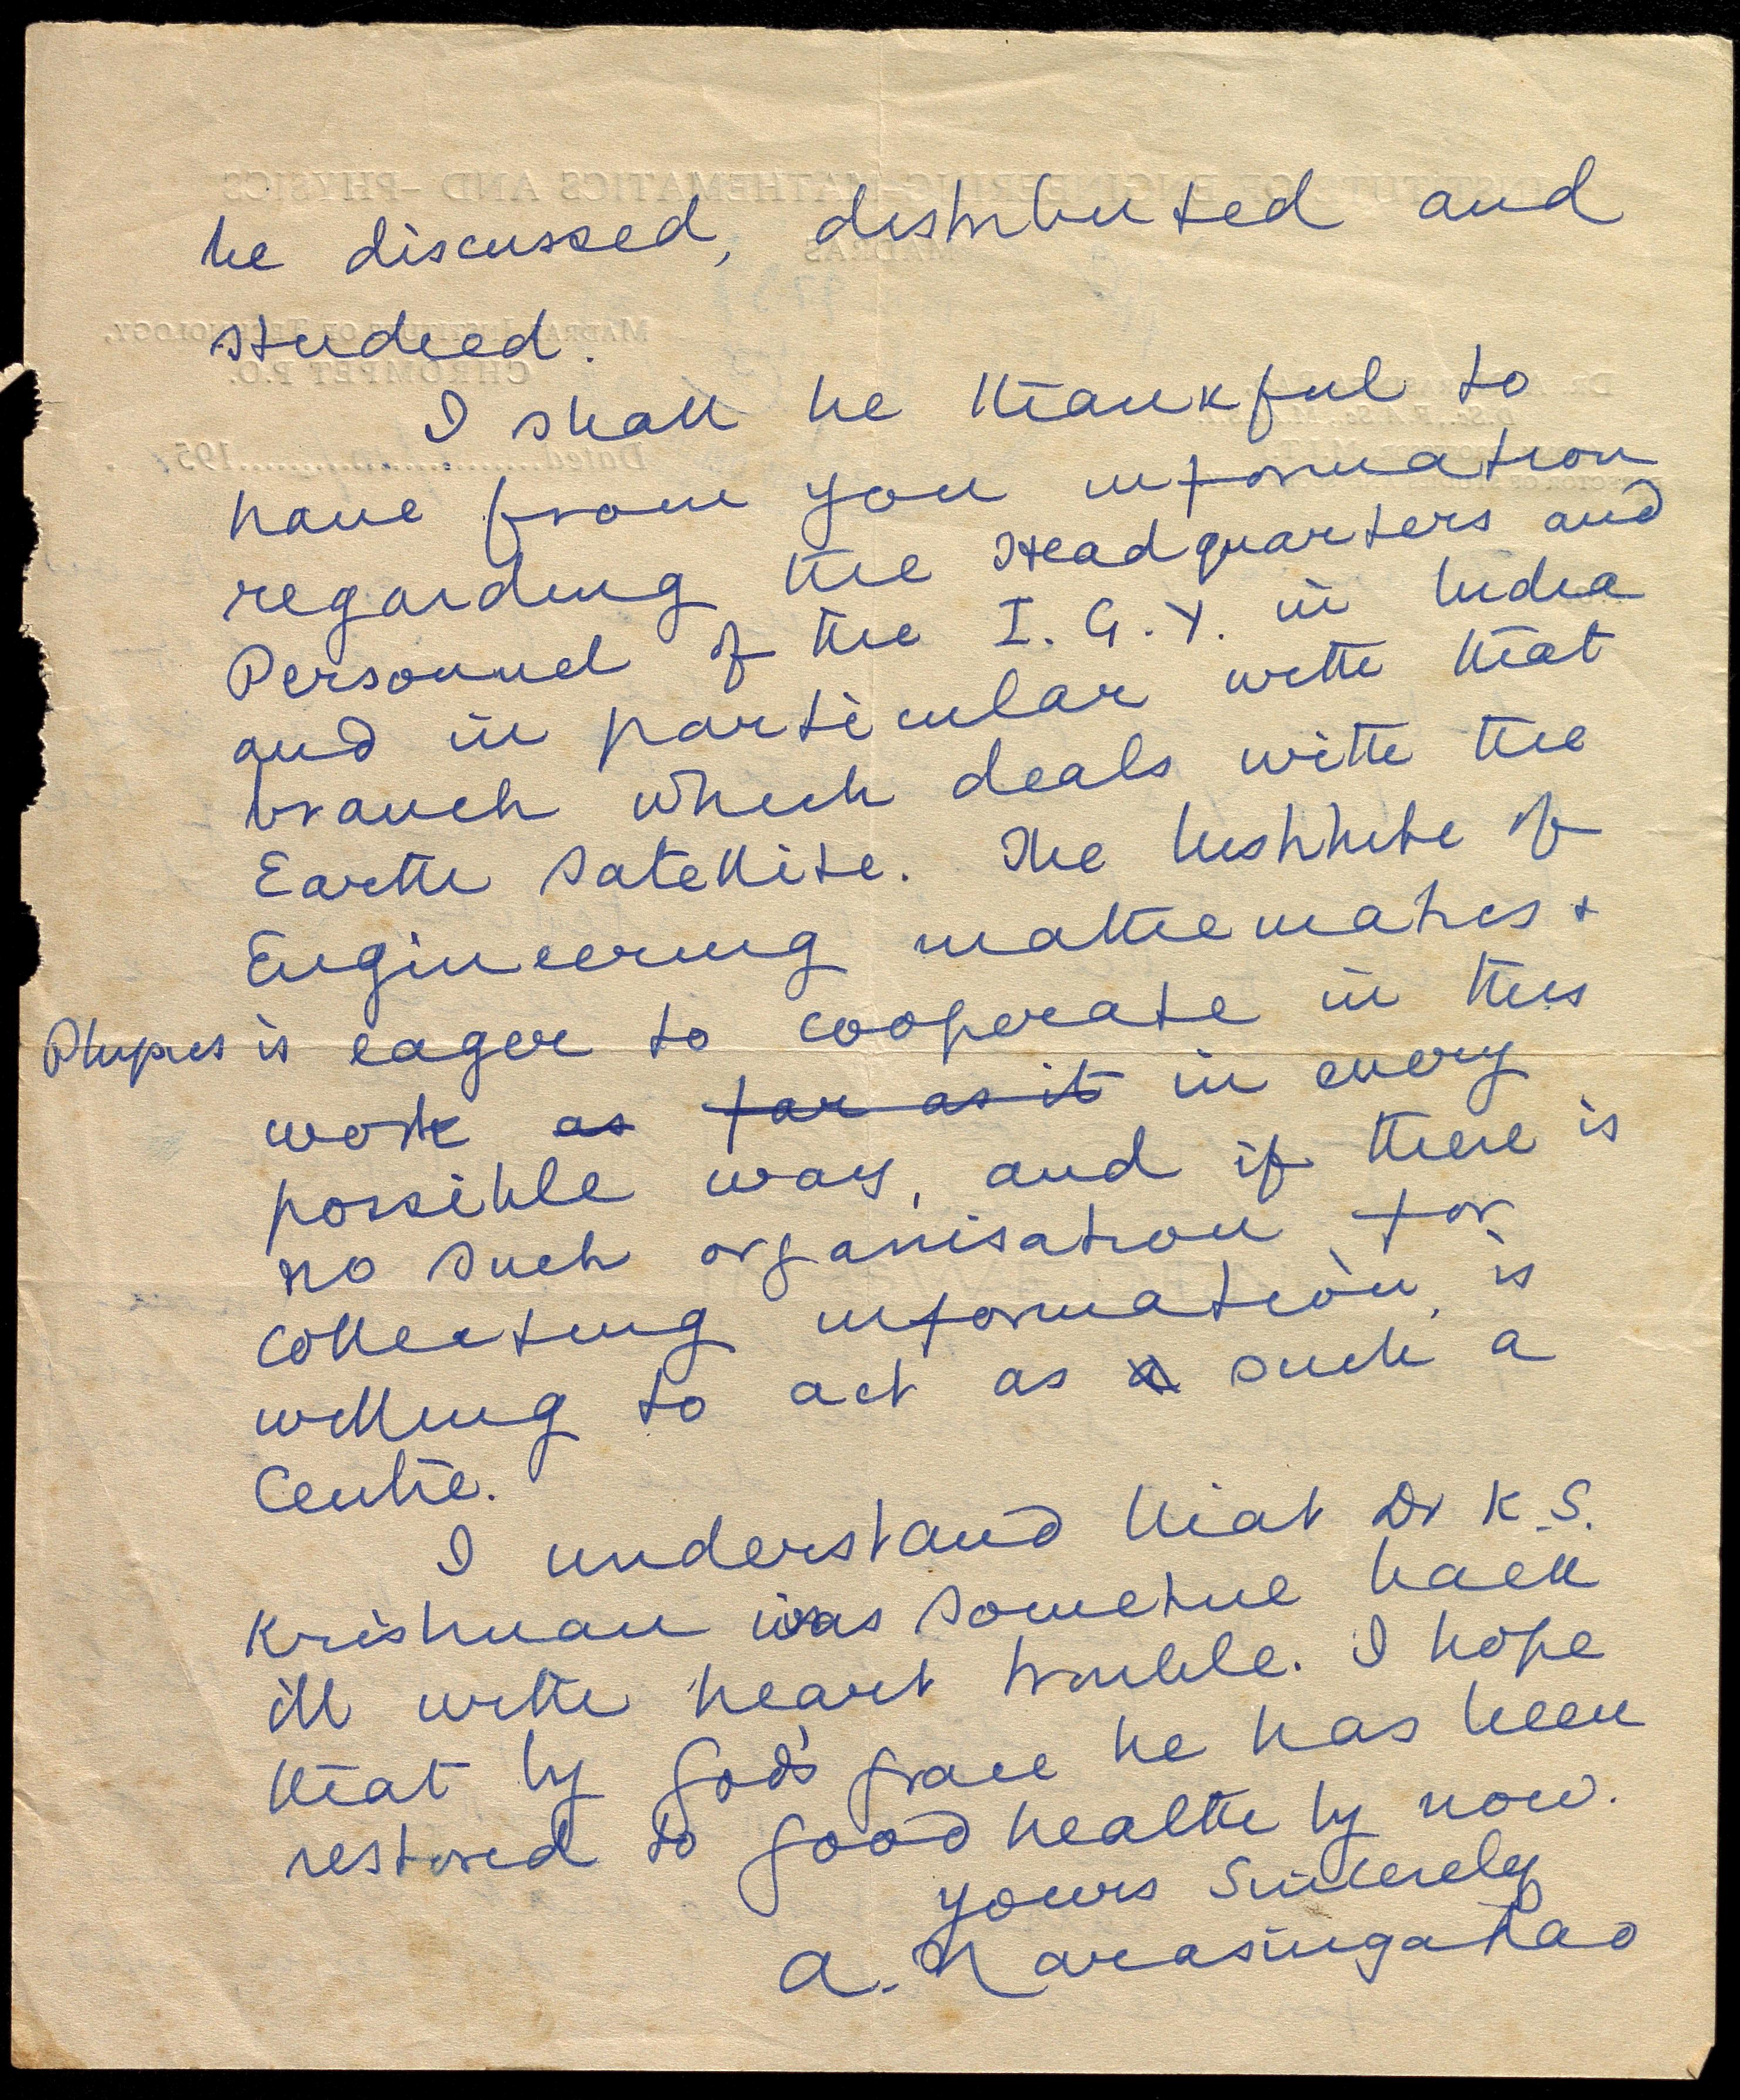 be discussed, distributed and
studied.
I shall be thankful to
have from you information
regarding the Headquarters and
Personnel of the I.G.Y. in India
and in particular with that
branch which deals with the
Earth Satellite. The Institute of
Engineering Mathematics +
Physics is eager to cooperate in this
work as far as it in every
possible way, and if there is
no such organisation for
collecting information, is
willing to act as a such a
Centre.
I understand that Dr K.S.
Krishnan was sometime back
ill with heart trouble. I hope
that by God's grace he has been
restored to good health by now.
yours Sincerely
A. Narasinga Rao